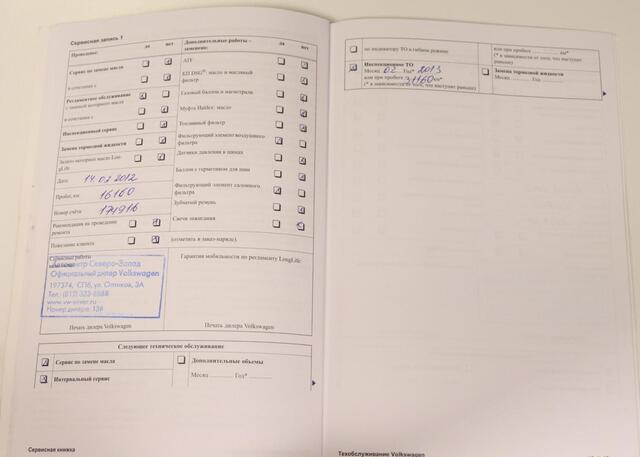 Сервисная запись 1
Проведено:
да
нет
Сервис по замене масла
в сочетании с
Регламентное обслуживание
с заменой моторного масла
в сочетании с
Инспекционный сервис
Замена тормозной жидкости
Залито моторное масло Lon-
gLife
Дата 14.02.2012
Пробег, км 16160
Номер счёта 174916
Рекомендации по проведению
ремонта
Пожелание клиента
(отметить в заказ-наряде).
Дополнительные работы –
заменено:
да
нет
ATF
КП DSG®: масло и масляный
фильтр
Газовый баллон и магистрали
Муфта Haldex: масло
Топливный фильтр
Фильтрующий элемент воздушного
фильтра
Датчики давления в шинах
Баллон с герметиком для шин
Фильтрующий элемент салонного
фильтра
Зубчатый ремень
Свечи зажигания
Сервисные работы
Автоцентр Северо-Запад
Официальный дилер Volkswagen
197374, СПб, ул. Оптиков, 3А
Тел.: (812) 323-8888
Номер дилера: 136
Печать дилера Volkswagen
Гарантия мобильности по регламенту LongLife
Печать дилера Volkswagen
Следующее техническое обслуживание
Сервис по замене масла
Интервальный сервис
Дополнительные объемы
Месяц ........... Год* ..........
Сервисная книжка
по индикатору ТО в гибком режиме
Инспекционное ТО
Месяц 02 Год* 2013
или при пробеге 31160 км*
(* в зависимости от того, что наступит раньше)
или при пробеге .......... км*
(* в зависимости от того, что наступит
раньше)
Замена тормозной жидкости
Месяц ........... Год ..........
Техобслуживание Volkswagen